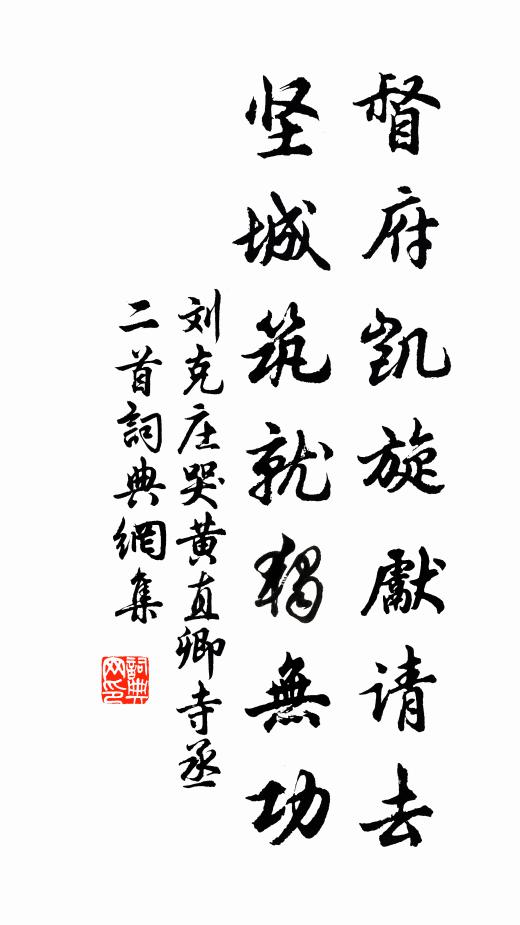 督府凯旋獻请去
坚城筑就獨無功
刘克庄哭黄直卿寺丞
二首詞典網集
詞典网印